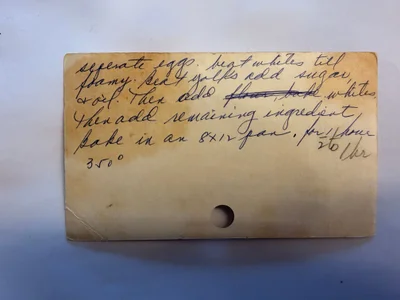 seperate eggs. beat whites till
foamy. Beat yolks add sugar,
& oil. Then add flour, bake whites,
Then add remaining ingredient
bake in an 8x12 pan. for 1 hour
350° 1hr